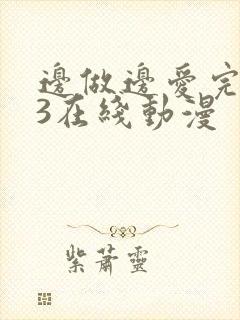 邊做邊愛完
3在綫動漫
紫蕭靈